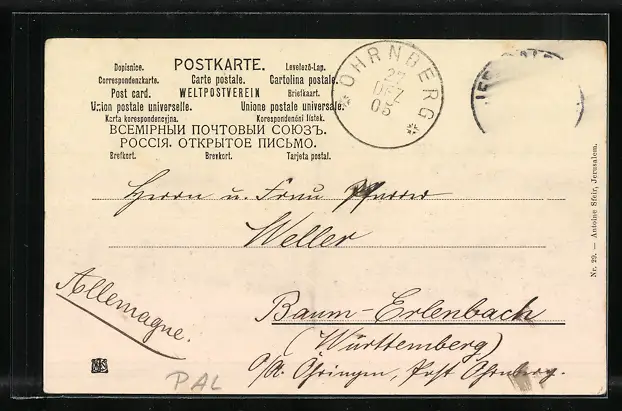 POSTKARTE.
Dopisnice. Levelező-Lap.
Correspondenzkarte. Carte postale. Cartolina postale.
Post card. WELTPOSTVEREIN Briefkaart.
Union postale universelle. Unione postale universale.
Karta korespondencyjna. Korespondenční lístek.
ВСЕМІРНЫЙ ПОЧТОВЫЙ СОЮЗЪ.
РОССІЯ. ОТКРЫТОЕ ПИСЬМО.
Brefkort. Brevkort. Tarjeta postal.
OHRNBERG
27
DEZ
05
Herrn u. Frau Pfarrer
Weller
Allemagne.
Baum-Erlenbach
(Württemberg)
O/A. Öhringen, Post Ohrnberg.
PAL
Nr. 29. — Antoine Sfeir, Jerusalem.